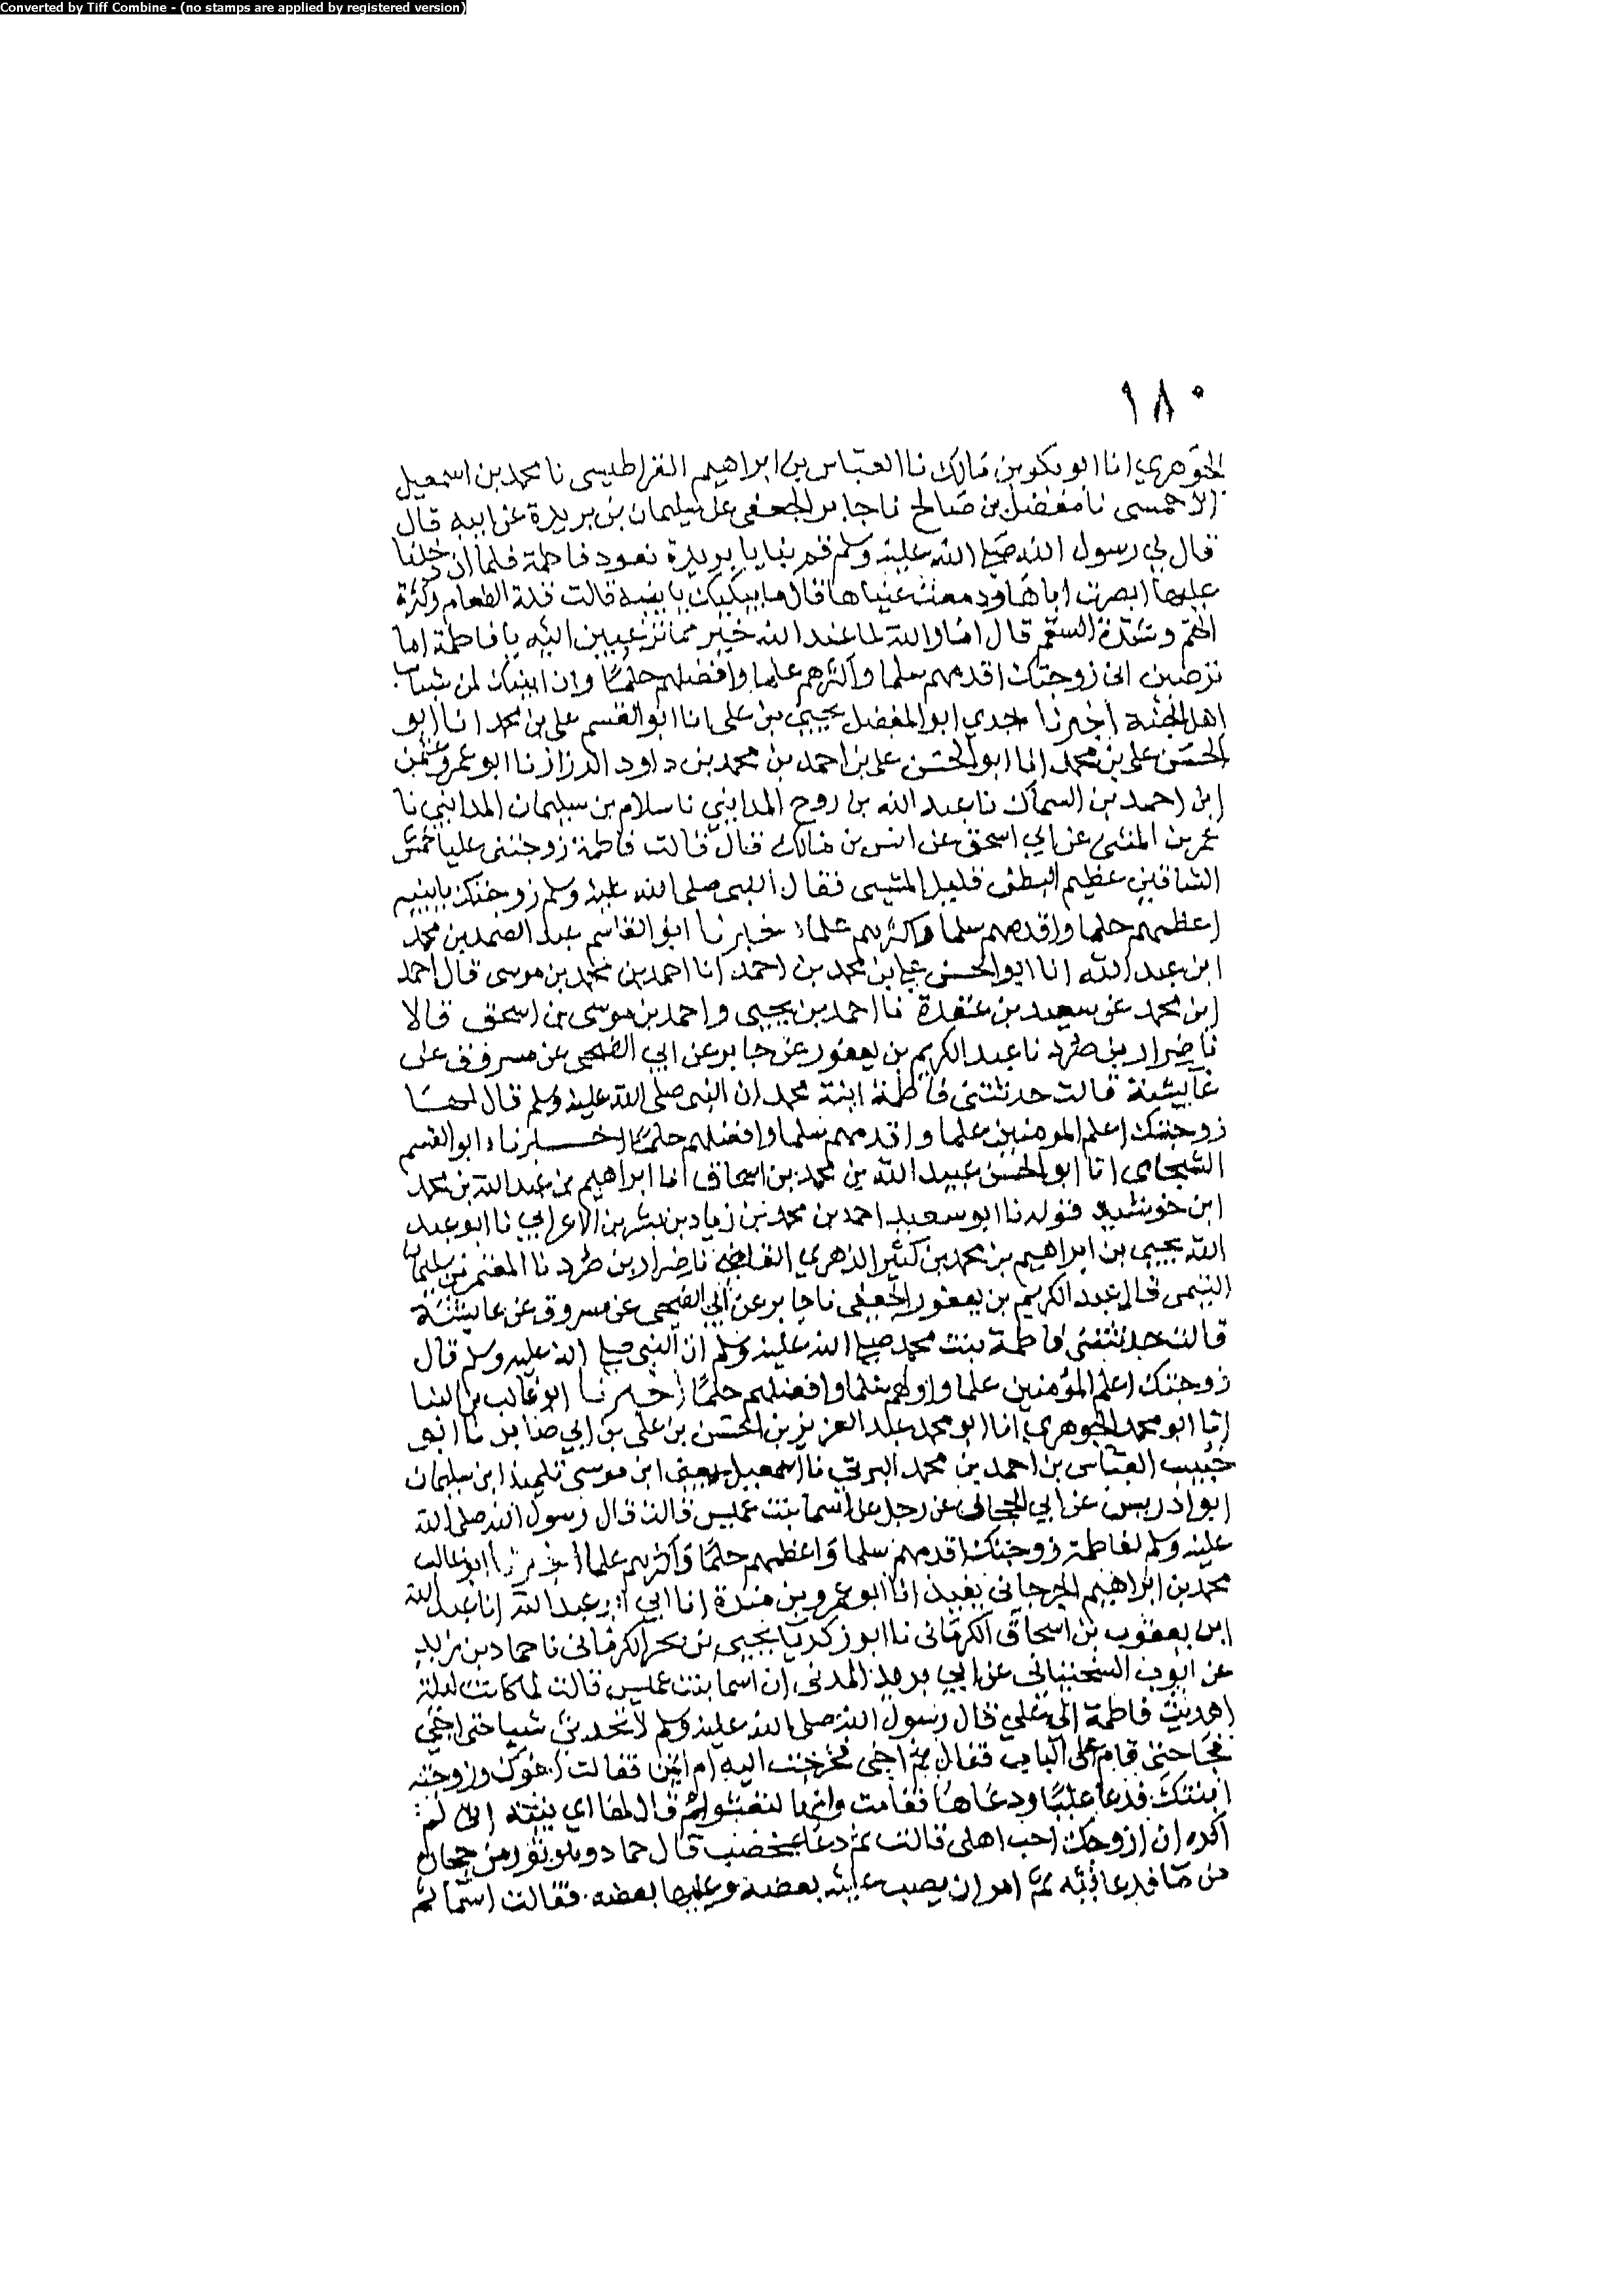 Converted by Tiff Combine - (no stamps are applied by registered version)
١٨٠
الجوهري انا ابو بكر بن مالك نا العباس بن ابراهيم القراطيسي نا محمد بن اسمعيل
الاحمسى نا مفضل بن صالح نا جابر الجعفى عن سليمان بن بريدة عن ابيه قال
قال لي رسول الله صلى الله عليه وسلم قم بنا يا بريدة نعود فاطمة فلما ان دخلنا
عليها ابصرت اباها ودمعت عيناها قال ما يبكيك يا بنيه قالت قلة الطعام وكثرة
الهم وشدة السقم قال اما والله لما عند الله خير مما ترغبين اليه يا فاطمة اما
ترضين انى زوجتك اقدمهم سلما واكثرهم علما وافضلهم حلما وان ابنيك لمن شباب
اهل الجنة اخبرنا جدي ابو المفضل يحيى بن على انا ابو القسم على بن محمد انا ابو
الحسن على بن محمد انا ابو الحسن على بن احمد بن محمد بن داود الرزاز نا ابو عمرو عثمن
ابن احمد بن السماك نا عبد الله بن روح المدايني نا سلام بن سليمان المدايني نا
عمر بن المثنى عن ابي اسحق عن انس بن مالك قال قالت فاطمة زوجتنى عليا حمش
الساقين عظيم البطن قليل المشى فقال النبى صلى الله عليه وسلم زوجتك يا بنيه
اعظمهم حلما واقدمهم سلما واكثرهم علما خبرنا ابو القاسم عبد الصمد بن محمد
ابن عبد الله انا ابو الحسن على بن محمد بن احمد انا احمد بن محمد بن موسى قال احمد
ابن محمد عن سعيد بن عقدة نا احمد بن يحيى واحمد بن موسى بن اسحق قالا
نا ضرار بن صرد نا عبد الكريم بن يعفور عن جابر عن ابي الضحى عن مسروق عن
عايشة قالت حدثتنى فاطمة ابنة محمد ان النبى صلى الله عليه وسلم قال لها
زوجتك اعلم المومنين علما واقدمهم سلما وافضلهم حلما اخبرنا ابو القسم
الشحامى انا ابو الحسن عبيد الله بن محمد بن اسحاق انا ابراهيم بن عبد الله بن محمد
ابن خورشيد قوله نا ابو سعيد احمد بن محمد بن زياد بن بشر بن الاعرابي نا ابو عبد
الله يحيى بن ابراهيم بن محمد بن كثير الزهري القاضى نا ضرار بن صرد نا المعتمر بن سليمان
التيمى قال عبد الكريم بن يعفور الجعفى نا جابر عن ابي الضحى عن مسروق عن عايشة
قالت حدثتنى فاطمة بنت محمد صلى الله عليه وسلم ان النبى صلى الله عليه وسلم قال
زوجتك اعلم المؤمنين علما واولهم سلما وافضلهم حلما اخبرنا ابو غالب بن البنا
انا ابو محمد الجوهري انا ابو محمد عبد العزيز بن الحسن بن على بن ابي صابر نا ابو
حبيب العباس بن احمد بن محمد البرتي نا اسمعيل يعنى ابن موسى تلميذ ابن سليمان
ابو ادريس عن ابي الجحاف عن رجل عن اسما بنت عميس قالت قال رسول الله صلى الله
عليه وسلم لفاطمة زوجتك اقدمهم سلما واعظمهم حلما واكثرهم علما اخبرنا ابو غالب
محمد بن ابراهيم الجرجانى انا ابو عمرو بن مندة انا ابي عبد الله انا عبد الله
ابن يعقوب بن اسحاق الكرمانى نا ابو زكريا يحيى بن بحر الكرمانى نا حماد بن زيد
عن ايوب السختيانى عن ابي يزيد المدنى ان اسما بنت عميس قالت لما كانت ليلة
اهديت فاطمة الى على قال رسول الله صلى الله عليه وسلم لا تحدثن شيا حتى اجئ
فجا حتى قام على الباب فقال ثم اخى فخرجت اليه ام ايمن فقالت اخوك وزوجته
ابنتك فدعا عليا ودعاها فقامت وانها لتعثر ثم قال لها اي بنته انى لم
اكره ان ازوجك احب اهلى قالت ثم دعا بمخضب قال حماد وهو تور من حجارة
من ما فدعا فيه ثم امر ان يصب عليه بعضه وعليها بعضه فقالت اسما ثم